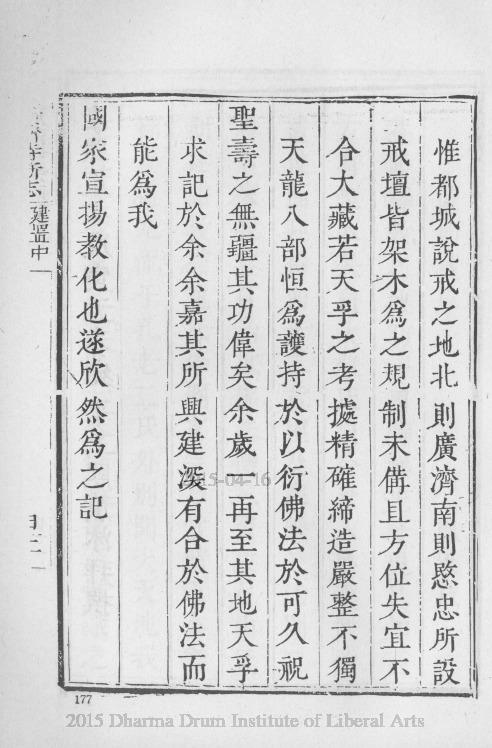 惟都城說戒之地北則廣濟南則愍忠所設
戒壇皆架木爲之規制未備且方位失宜不
合大藏若天孚之考據精確締造嚴整不獨
天龍八部恒爲護持於以衍佛法於可久祝
聖壽之無疆其功偉矣余歲一再至其地天孚
求記於余余嘉其所興建深有合於佛法而
能爲我
國家宣揚教化也遂欣然爲之記
寺新志
建置中
177
2015-04-16
2015 Dharma Drum Institute of Liberal Arts